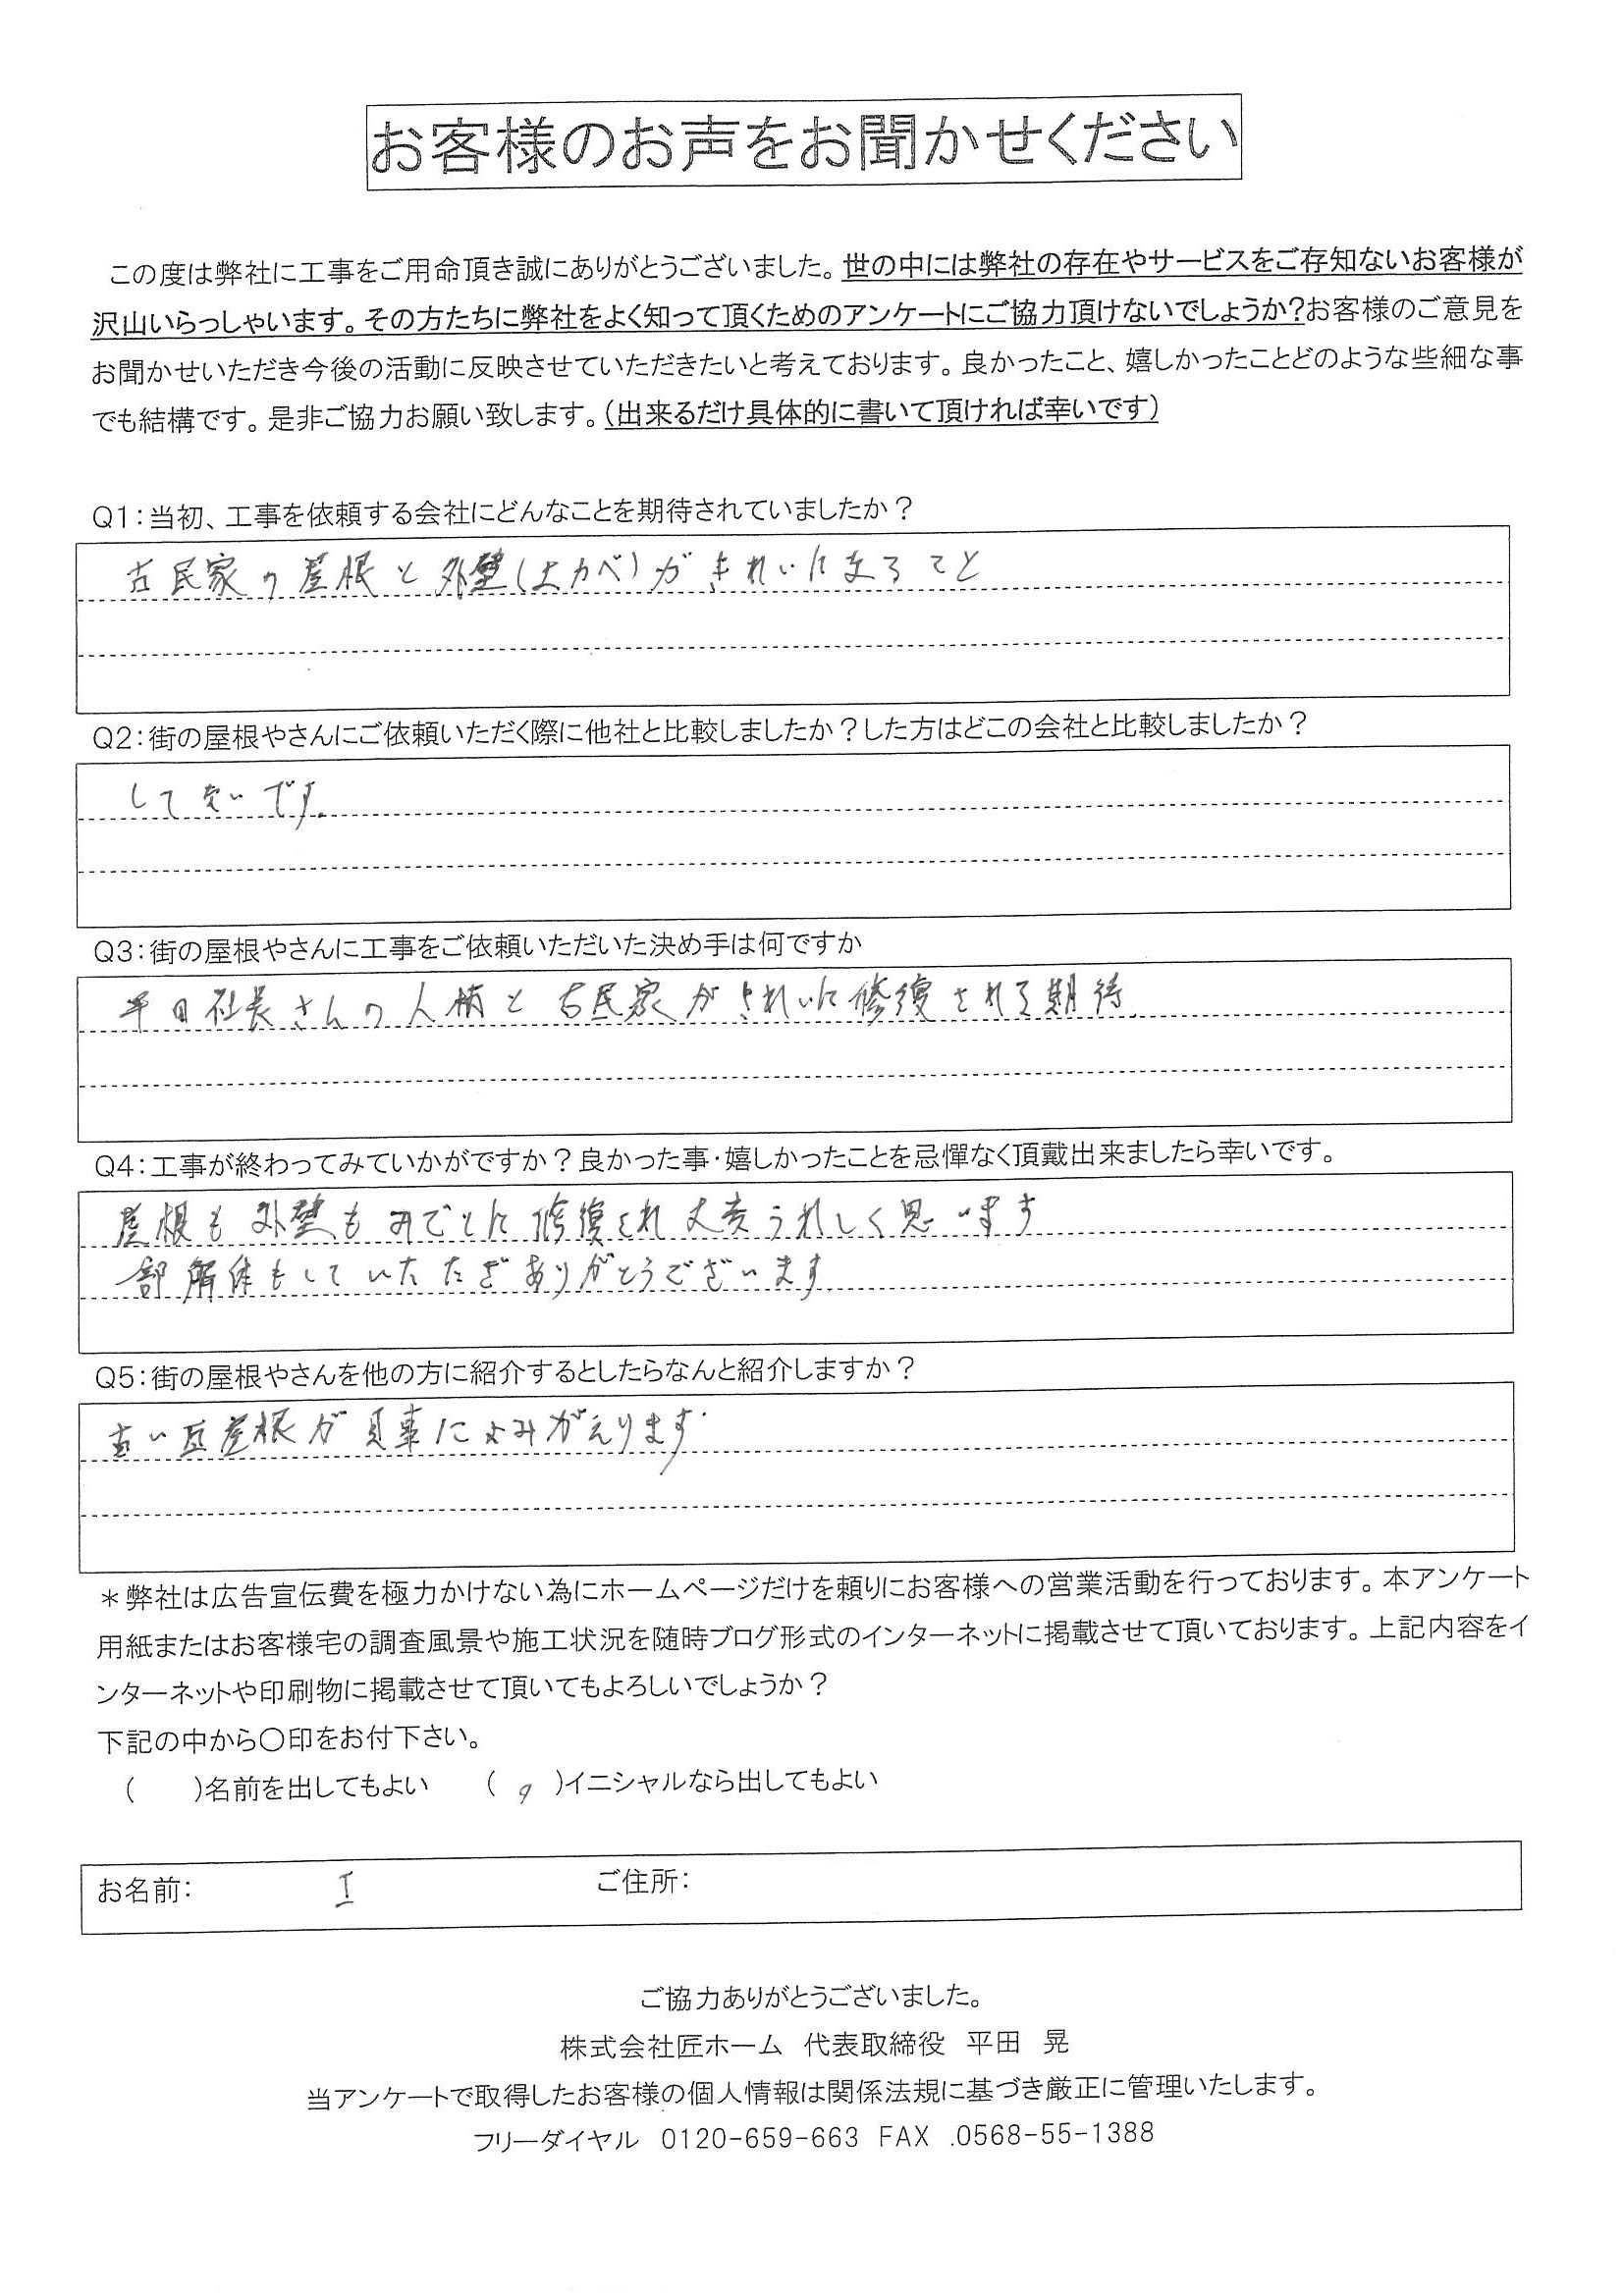 お客様のお声をお聞かせください
この度は弊社に工事をご用命頂き誠にありがとうございました。世の中には弊社の存在やサービスをご存知ないお客様が
沢山いらっしゃいます。その方たちに弊社をよく知って頂くためのアンケートにご協力頂けないでしょうか?お客様のご意見を
お聞かせいただき今後の活動に反映させていただきたいと考えております。良かったこと、嬉しかったことどのような些細な事
でも結構です。是非ご協力お願い致します。(出来るだけ具体的に書いて頂ければ幸いです)
Q1:当初、工事を依頼する会社にどんなことを期待されていましたか?
古民家の屋根と外壁(土カベ)がきれいになること
Q2:街の屋根やさんにご依頼いただく際に他社と比較しましたか?した方はどこの会社と比較しましたか?
してないです。
Q3:街の屋根やさんに工事をご依頼いただいた決め手は何ですか
平田社長さんの人柄と古民家がきれいに修復される期待
Q4:工事が終わってみていかがですか?良かった事・嬉しかったことを忌憚なく頂戴出来ましたら幸いです。
屋根も外壁もみごとに修復され大変うれしく思います
一部解体もしていただきありがとうございます
Q5:街の屋根やさんを他の方に紹介するとしたらなんと紹介しますか?
古い瓦屋根が見事によみがえります
*弊社は広告宣伝費を極力かけない為にホームページだけを頼りにお客様への営業活動を行っております。本アンケート
用紙またはお客様宅の調査風景や施工状況を随時ブログ形式のインターネットに掲載させて頂いております。上記内容をイ
ンターネットや印刷物に掲載させて頂いてもよろしいでしょうか?
下記の中から〇印をお付下さい。
(　　)名前を出してもよい　　(　○　)イニシャルなら出してもよい
お名前:　　I　　ご住所:
ご協力ありがとうございました。
株式会社匠ホーム　代表取締役　平田　晃
当アンケートで取得したお客様の個人情報は関係法規に基づき厳正に管理いたします。
フリーダイヤル　0120-659-663　FAX　.0568-55-1388